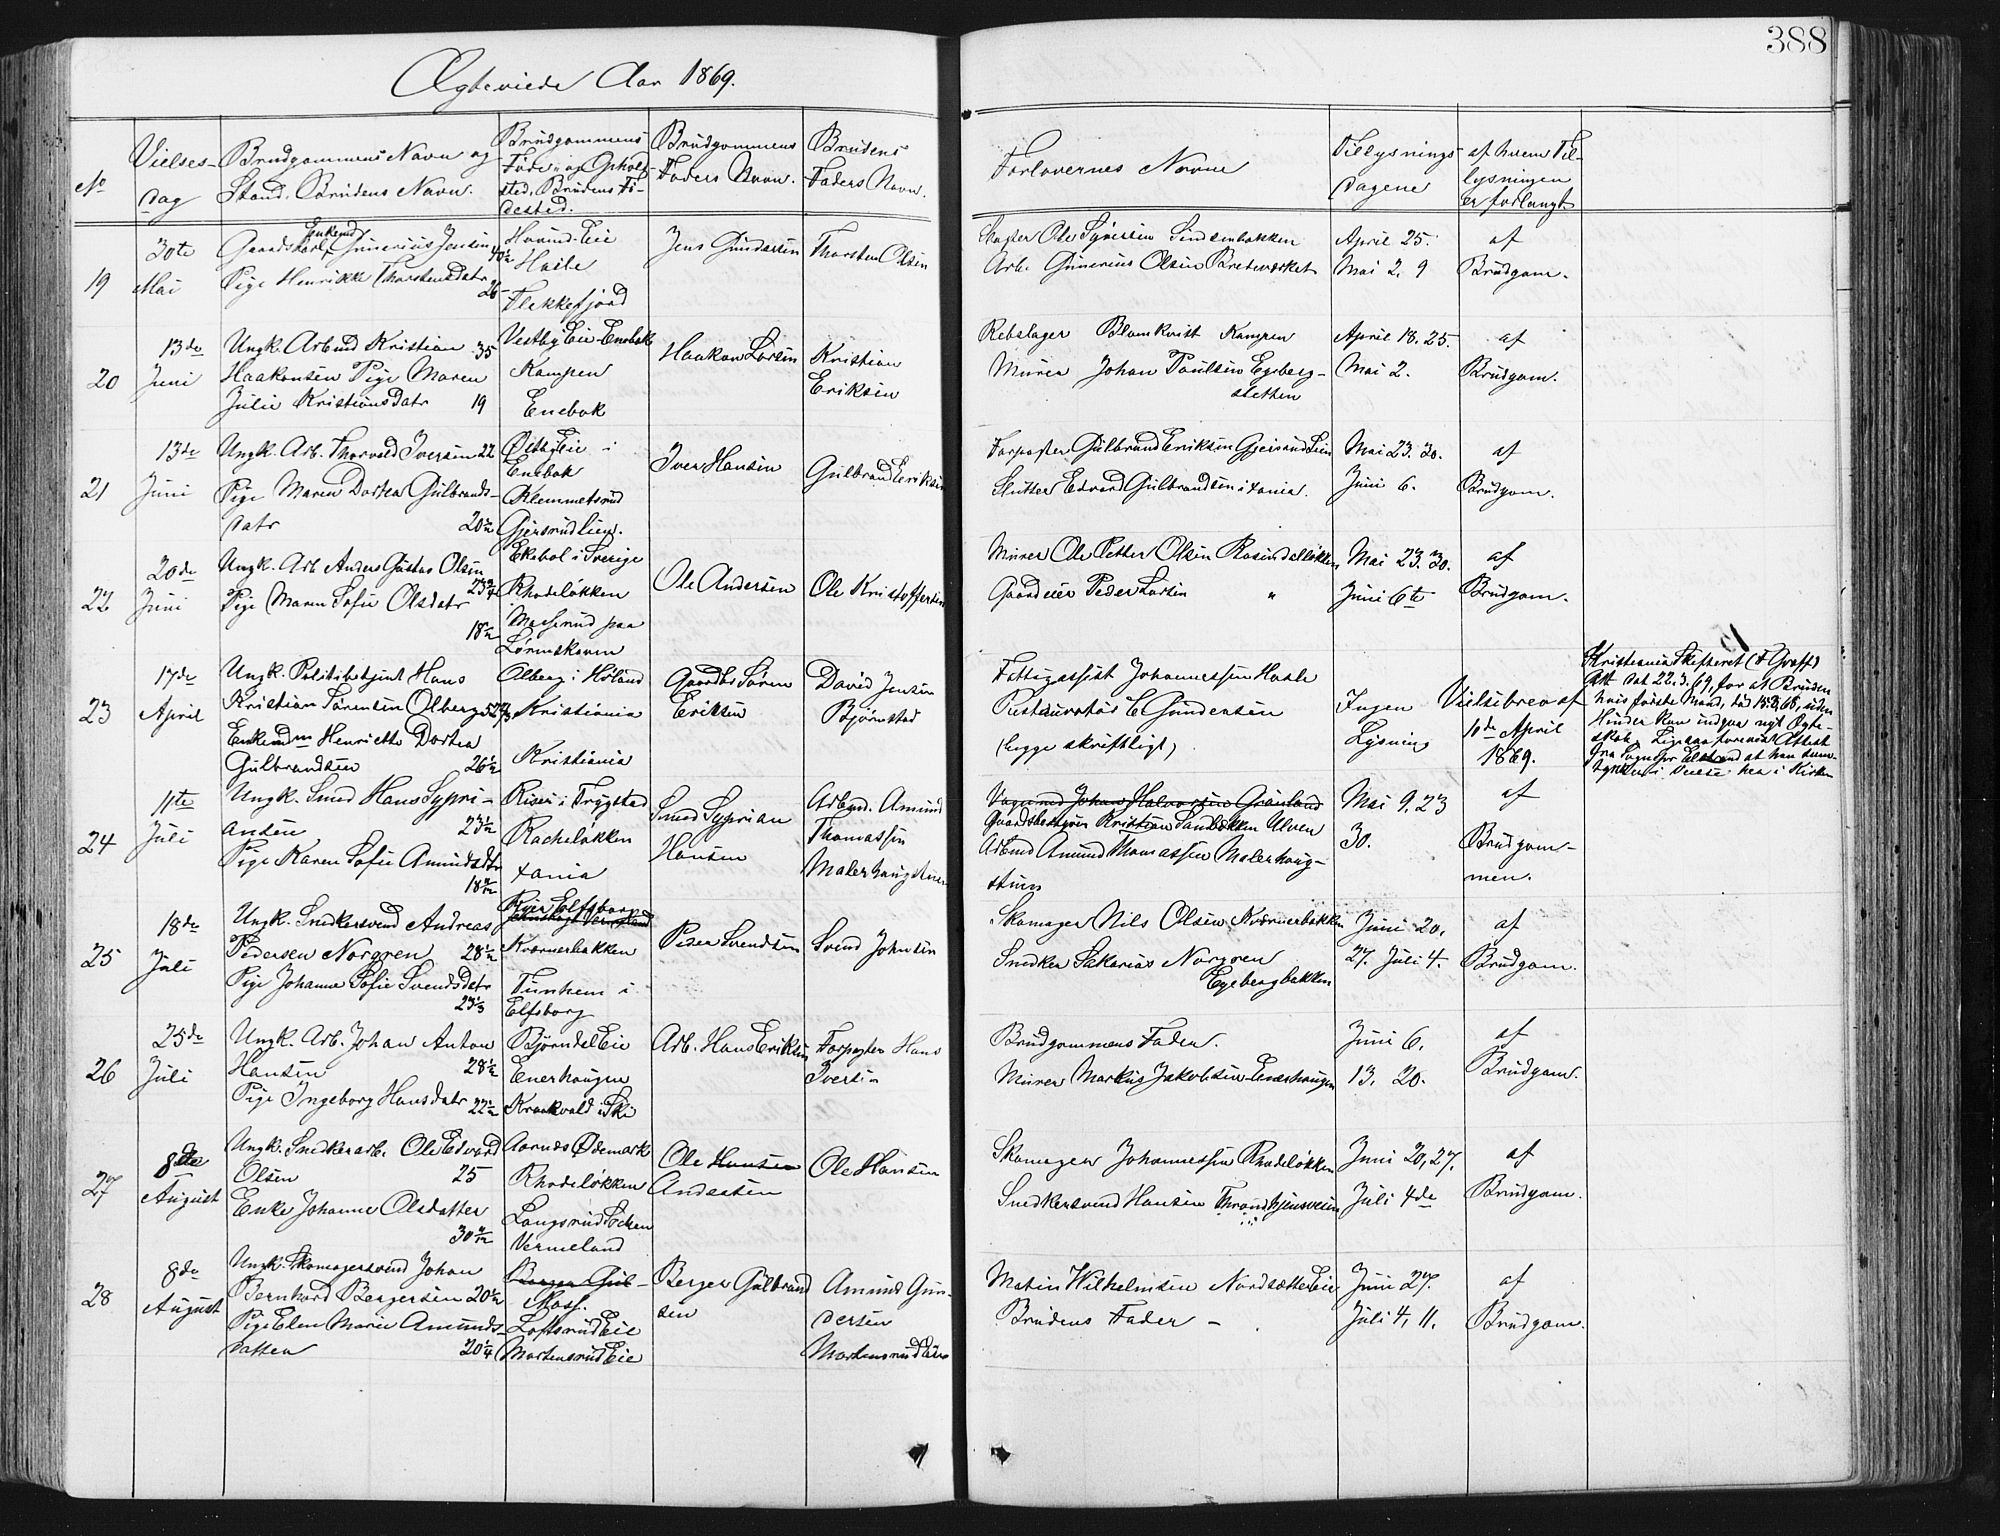 388
Ægteviede Aar 1869.
No
Vielses-
dag
Brudgommens Navn og
Stand. Brudens Navn.
Brudgommens
Føde- og Ophold-
sted. Brudens Fø-
dested.
Brudgommens
Faders Navn.
Brudens
Faders Navn.
Forlovernes Navne
Tillysnings
dagene
af hvem Til-
lysningen
er forlangt
19
30te
Mai
Enkemd
Gaardskarl Gunerius Jensen
Pige Henrikke Thorstensdatr
26
Eie
Flekkefjord
Jens Gundersen
Thorsten Olsen
Arb. Gunerius Olsen
April 25.
Mai 2. 9
af
Brudgom.
20
13de
Juni
Ungk. Arbmd Kristian 35
Haakonsen Pige Maren
Julie Kristiansdatr 19
Vestby Eie Enebak
Kampen
Enebak
Haakon Larsen
Kristian
Eriksen
Rebslager Blomkvist Kampen
Murer Johan Paulsen Egeberg-
sletten
April 18. 25.
Mai 2.
af
Brudgom.
21
13de
Juni
Ungk. Arb. Thorvald Iversen 22
Pige Maren Dortea Gulbrands-
datr
Østby Eie i
Enebak
Klemmetsrud
Gjersrudlien.
Iver Hansen
Gulbrand Eriksen
Forpagter Gulbrand Eriksen Gjersrud Lien
Slutter Edvard Gulbrandsen i Xania.
Mai 23. 30.
Juni 6.
af
Brudgom.
22
20de
Juni
Ungk. Arb. Anders Gustav Olsen
Pige Maren Sofie Olsdatr
Ekebol i Sverige
Rhodeløkken
Masserud paa
Lørenskoven
Ole Andersen
Ole Kristoffersen
Murer Ole Petter Olsen Rosendalløkken
Gaardeier Peder Larsen "
Mai 23. 30.
Juni 6te
af
Brudgom.
23
17de
April
Ungk. Politibetjent Hans
Kristian Sørensen Olberg
Enkemdm Henriette Dortea
Gulbrandsen 26½
Olberg i Høland
Kristiania
Kristiania
Gaardbr Søren
Eriksen
David Jensen
Bjørnstad
Fattigassist Johannessen Hasle
Restauratør C Gundersen
(begge skriftligt)
Ingen
Lysning
Vielsebrev af
10de April
1869.
Kristiania Skifteret (F Graff)
Att dat 22.3.69, for at Bruden
hvis første Mand, død 15.8.68, uden
Hinder kan indgaa nyt Ægte-
skab.
24
11te
Juli
Ungk. Smed Hans Sypri-
ansen 23½
Pige Karen Sofie Amundsdtr
Riser i Trygstad
Racheløkken
Xania
Smed Syprian
Hansen
Arbmd. Amund
Thomassen
Malerhaugstuen
Vognmd Johan Halvorsen Grønland
Gaardsbestyrer Kristian Sandbakken Ulven
Arbmd Amund Thomassen Malerhaug-
stuen
Mai 9. 23
30.
af
Brudgom-
men.
25
18de
Juli
Ungk. Snedkersvend Andreas
Pedersen Norgren 28½
Pige Johanne Sofie Svendsdatr
23⅓
Kværnerbakken
Tunhem i
Elfsborg
Peder Svendsen
Svend Johnsen
Skomager Nils Olsen Kværnerbakken
Snedker Sakarias Norgren
Egebergbakken
Juni 20.
27. Juli 4.
af
Brudgom.
26
25de
Juli
Ungk. Arb. Johan Anton
Hansen 28½
Pige Ingeborg Hansdatr 22½
Bjørndal Eie
Enerhaugen
Kraakvold i Ski
Arb. Hans Eriksen
Forpagter Hans
Iversen
Brudgommens Fader.
Murer Markus Jakobsen Enerhaugen
Juni 6.
13. 20.
af
Brudgom.
27
8de
August
Ungk. Snedkerarb. Ole Edvard
Olsen 25
Enke Johanne Olsdatter
Aarnæs Ødemark
Rhodeløkken
Vermeland
Ole Hansen
Andersen
Ole Hansen
Skomager Johannessen Rhodeløkken
Snedkersvend Hansen Throndhjemsveien
Juni 20, 27.
Juli 4de
af
Brudgom.
28
8de
August
Ungk. Skomagersvend Johan
Bernhard Bergersen 20½
Pige Elen Marie Amunds-
datter 20¼
Moss.
Loftsrud Eie
Mortensrud Eie
Berger Gulbrand
sen
Amund Gun-
dersen
Mortensrud Eie
Martin Wilhelmsen Nordsætte Eie
Brudens Fader -
Juni 27.
Juli 4, 11.
af
Brudgom.